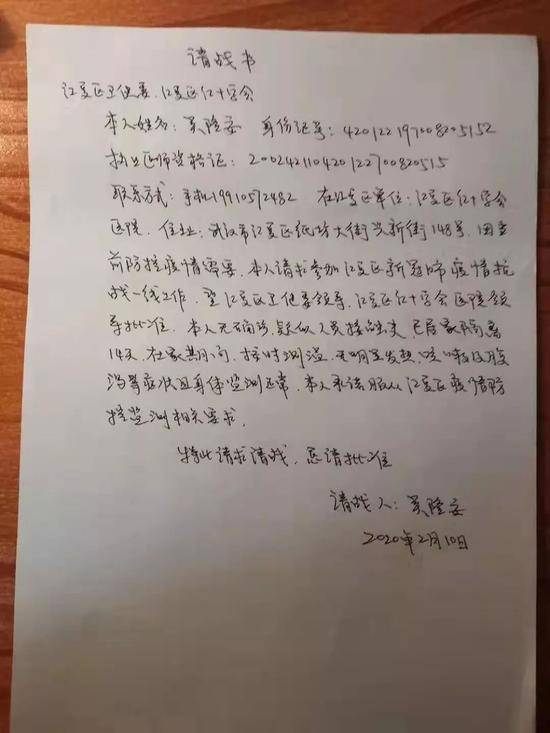 请战书
江夏区卫健委、江夏区红十字会
本人姓名：吴隆安 身份证号：420122197008205152
执业医师资格证：200242110420122700820515
联系方式：手机19910572482 在江夏区单位：江夏区红十字会
医院. 住址：武汉市江夏区纸坊大街兴新街148号. 因当
前防控疫情需要. 本人请求参加江夏区新冠肺疫情抗
战一线工作. 望江夏区卫健委领导、江夏区红十字会医院领
导批准. 本人无确诊、疑似人员接触史, 已居家隔离
14天, 在家期间, 按时测温, 无明显发热、咳嗽及腹
泻等症状且身体监测正常. 本人承诺服从江夏区疫情防
控监测相关要求.
特此请求请战, 恳请批准
请战人：吴隆安
2020年2月10日